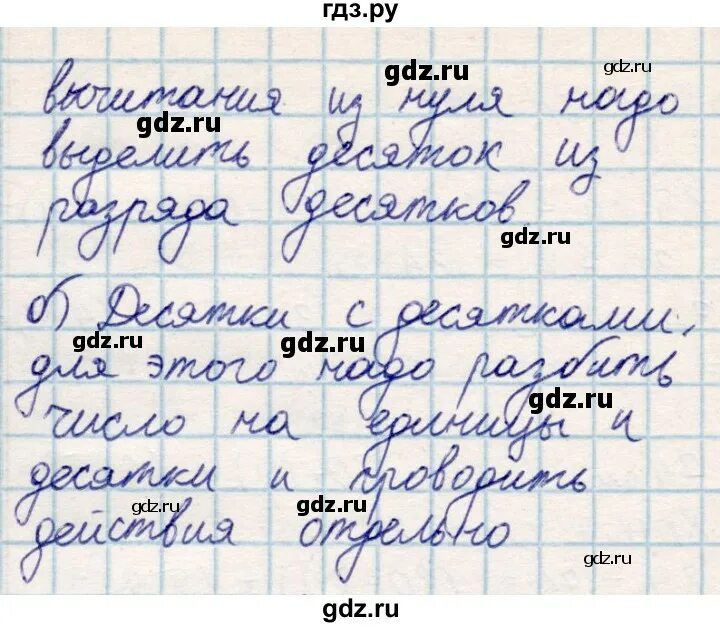 гдз.ру
gdz.ru
gdz.ru
вычитания из нуля надо
gdz.ru
выделить десяток из
разряда десятков
gdz.ru
б) Десятки с десятками,
gdz.ru
gdz.ru
для этого надо разбить
gdz.ru
число на единицы и
десятки и проводить
gdz.ru
gdz.ru
действия отдельно
gdz.ru
gdz.ru